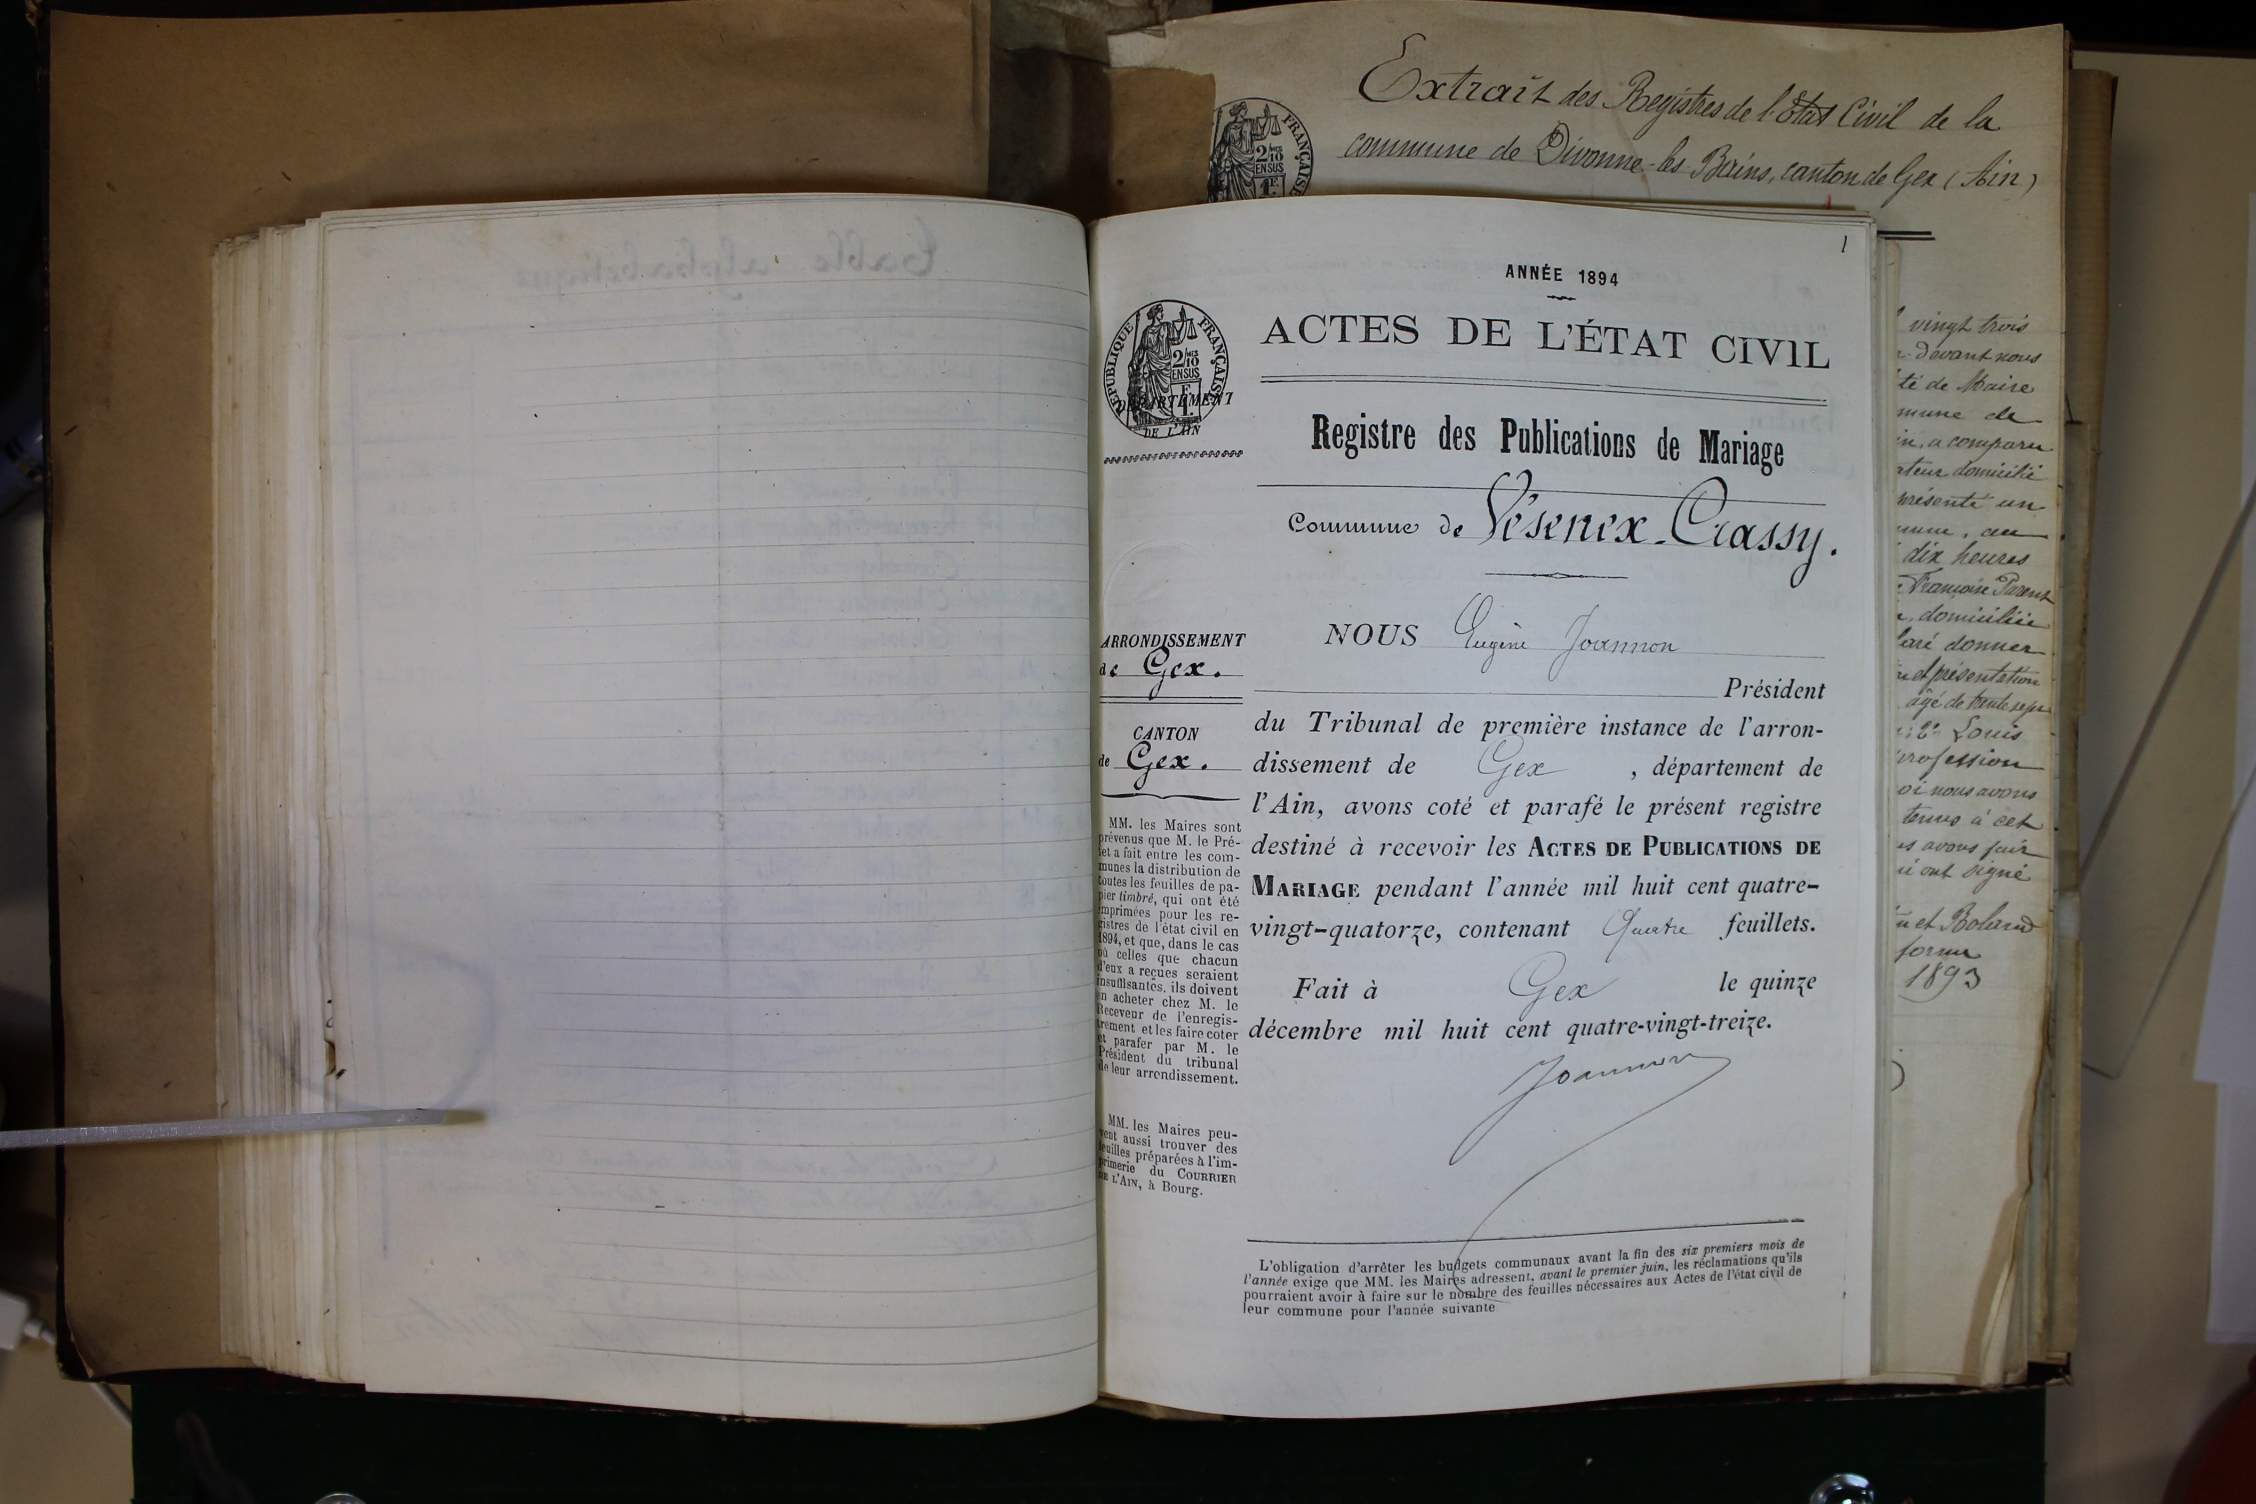 Extrait des Registres de l'Etat Civil de la
commune de Divonne-les-Bains, canton de Gex (Ain)
FRANÇAISE
2/10
EN SUS
1F.
1
ANNÉE 1894
ACTES DE L'ÉTAT CIVIL
RÉPUBLIQUE FRANÇAISE
2/10
EN SUS
F
1.
DÉPARTEMENT
DE L'AIN
Registre des Publications de Mariage
Commune de Vésenex-Crassy.
NOUS Eugène Joannon
Président
du Tribunal de première instance de l'arron-
dissement de Gex, département de
l'Ain, avons coté et parafé le présent registre
destiné à recevoir les ACTES DE PUBLICATIONS DE
MARIAGE pendant l'année mil huit cent quatre-
vingt-quatorze, contenant Quatre feuillets.
Fait à Gex le quinze
décembre mil huit cent quatre-vingt-treize.
Joannon
ARRONDISSEMENT
de Gex.
CANTON
de Gex.
MM. les Maires sont
prévenus que M. le Pré-
fet a fait entre les com-
munes la distribution de
toutes les feuilles de pa-
pier timbré, qui ont été
imprimées pour les re-
gistres de l'état civil en
1894, et que, dans le cas
où celles que chacun
d'eux a reçues seraient
insuffisantes, ils doivent
en acheter chez M. le
Receveur de l'enregis-
trement et les faire coter
et parafer par M. le
Président du tribunal
de leur arrondissement.
MM. les Maires peu-
vent aussi trouver des
feuilles préparées à l'im-
primerie du COURRIER
DE L'AIN, à Bourg.
L'obligation d'arrêter les budgets communaux avant la fin des six premiers mois de
l'année exige que MM. les Maires adressent, avant le premier juin, les réclamations qu'ils
pourraient avoir à faire sur le nombre des feuilles nécessaires aux Actes de l'état civil de
leur commune pour l'année suivante
vingt trois
devant nous
té de Maire
mune de
in, a comparu
ateur domicilié
présenté un
mune, au
dix heures
Françoise Parent
domiciliée
laré donner
et présentation
âgé de trente sept
Louis
profession
oi nous avons
tenus à cet
avons fait
ont signé
et Roland
forme
1893